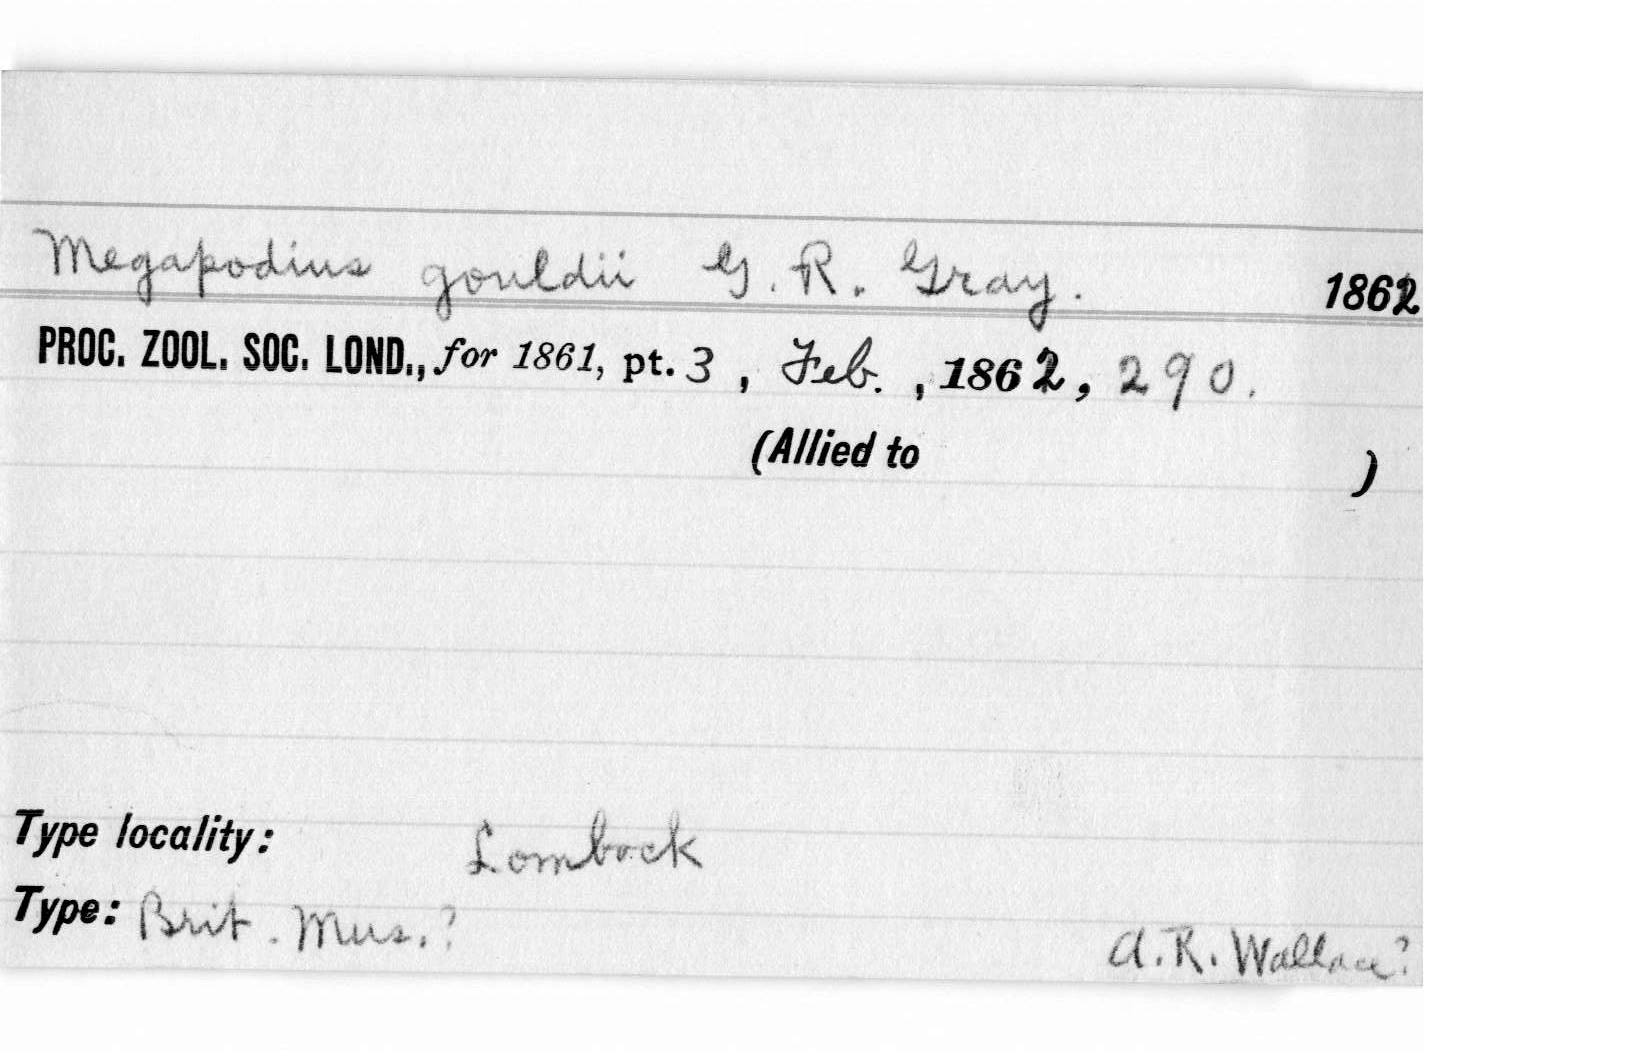 Megapodius gouldii G. R. Gray. 1862
PROC. ZOOL. SOC. LOND., for 1861, pt. 3, Feb., 1862, 290.
(Allied to )
Type locality: Lombock
Type: Brit. Mus.? A. R. Wallace?